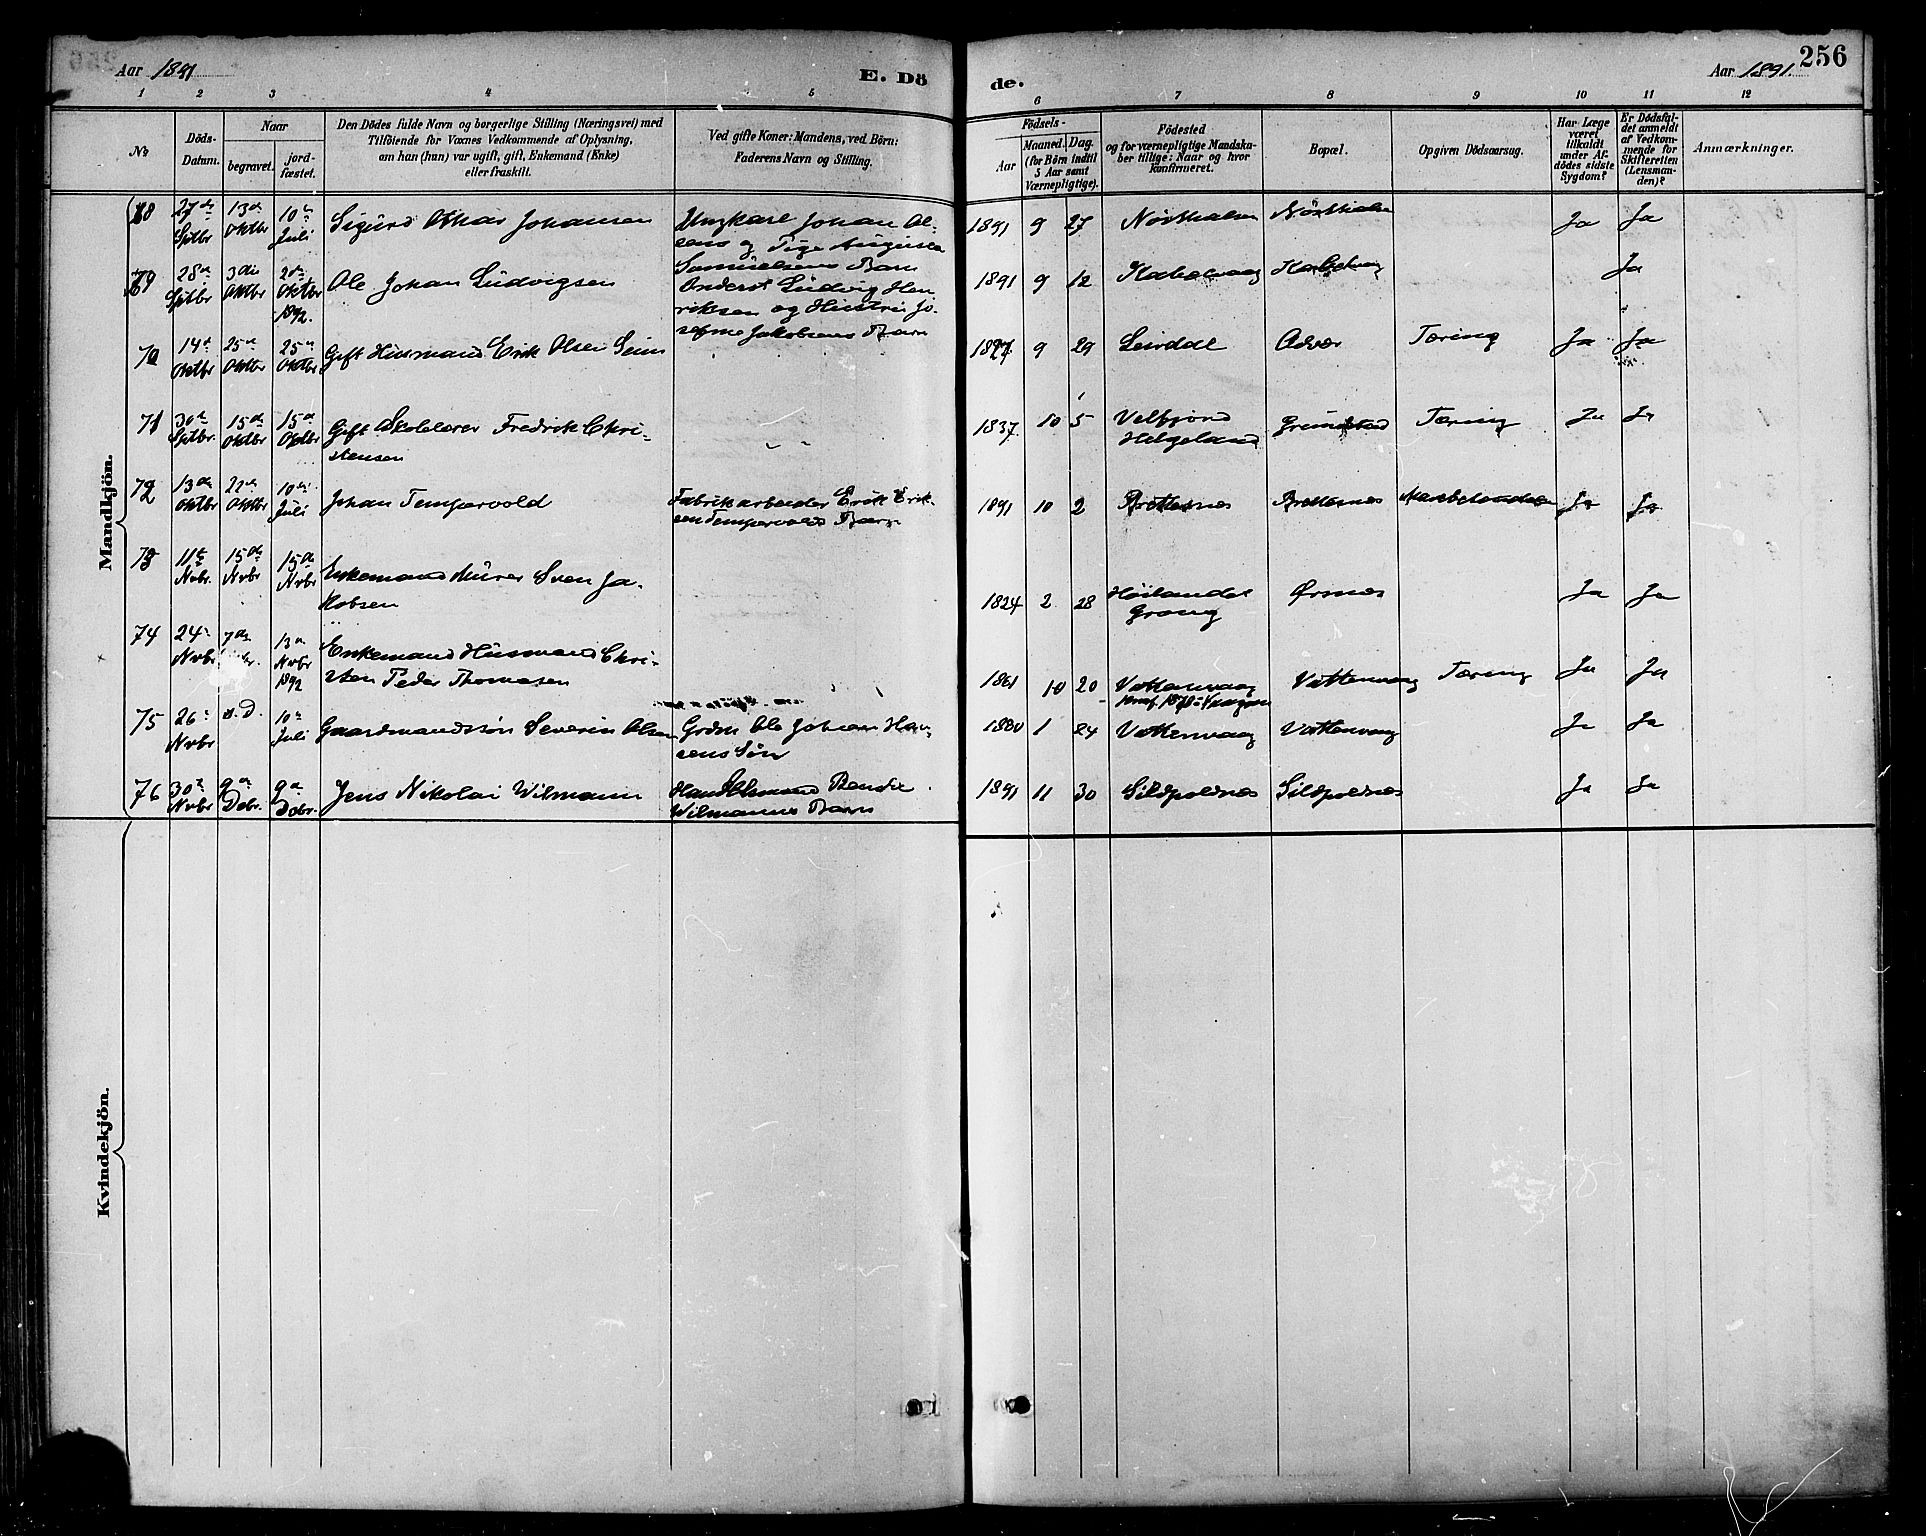 Aar 1891
E. Dö
de.
Aar 1891.
256
1 2 3 4 5 6 7 8 9 10 11 12
No
Döds-Datum.
Naar
begravet.
jord-fæstet.
Den Dödes fulde Navn og borgerlige Stilling (Næringsvei) med
Tilföiende for Voxnes Vedkommende af Oplysning,
om han (hun) var ugift, gift, Enkemand (Enke)
eller fraskilt.
Ved gifte Koner: Mandens, ved Börn:
Faderens Navn og Stilling.
Födsels-
Aar
Maaned. Dag.
(for Börn indtil
5 Aar samt
Værnepligtige).
Födested
og for værnepligtige Mandska-
ber tillige: Naar og hvor
konfirmeret.
Bopæl.
Opgiven Dödsaarsag.
Har Læge
været
tilkaldt
under Af-
dödes sidste
Sygdom?
Er Dödsfal-
det anmeldt
af Vedkom-
mende for
Skifteretten
(Lensman-
den)?
Anmærkninger.
Mandkjön.
68 27de Sptbr 13de Oktbr 10de Juli Sigurd Othar Johansen Ungkarl Johan Ol-
sens og Pige Augusta
Samuelsens Barn
1891 9 27 Ja Ja
69 28de Sptbr 3die Oktbr 2de Oktbr 1892. Ole Johan Ludvigsen Anders Ludvig Hen
riksen og Hustru Jo
sefine Jakobsens Barn
1891 9 12 Kabelvaag Kabelvaag Ja
70 14de Oktbr 25de Oktbr 25de Oktbr Gift Husmand Erik Olsen Seim
1827 9 29 Leirdal Tæring Ja Ja
71 30te Sptbr. 15de Oktbr 15de Oktbr Gift Skolelærer Fredrik Chri-
stensen
1837 10 5 Velfjord
Helgeland Grundstad Tæring Ja Ja
72 13de Oktbr 22de Oktbr 10de Juli Johan Tempervold Fabrikarbeider Erik Erik-
sen Tempervolds Barn
1891 10 2 Brettesnes Brettesnes Ja Ja
73 11te Nvbr. 15de Nvbr 15de Nvbr Enkemand Murer Sven Ja-
kobsen
1824 2 28 Høilandet
Grong Ørsnes Ja Ja
74 24de Nvbr 7de 13de Nvbr 1892 Enkemand Husmand Chri-
sten Peder Thomasen
1861 10 20 Vattervaag Vattervaag Tæring Ja Ja
75 26de Nvbr s.D. 10de Juli Gaardmandssøn Severin Olsen Grdm Ole Johan Han-
sens Søn
1880 1 24 Vattervaag Vattervaag Ja Ja
76 30te Nvbr 9de Dcbr. 9de Dcbr. Jens Nikolai Wilmann Handelsmand
Wilmanns Barn
1891 11 30 Sildpoldnes Sildpoldnes Ja Ja
Kvindekjön.